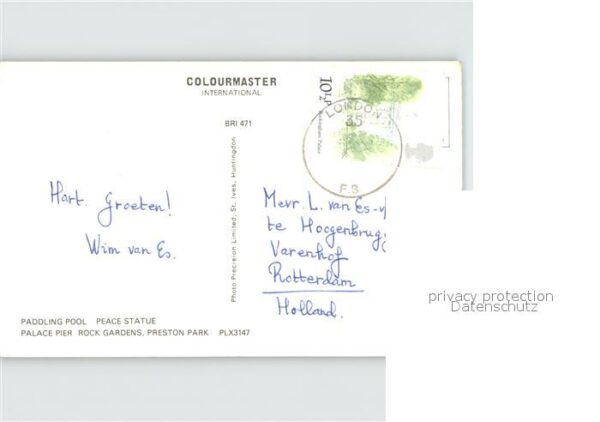 COLOURMASTER
INTERNATIONAL
BRI 471
10½P
Buckingham Palace
LONDON
35
F.S
Hart. Groeten!
Wim van Es.
Photo Precision Limited, St. Ives, Huntingdon
Mevr. L. van Es-v
te Hoogenbrug
Varenhof
Rotterdam
Holland.
PADDLING POOL PEACE STATUE
PALACE PIER ROCK GARDENS, PRESTON PARK PLX3147
privacy protection
Datenschutz